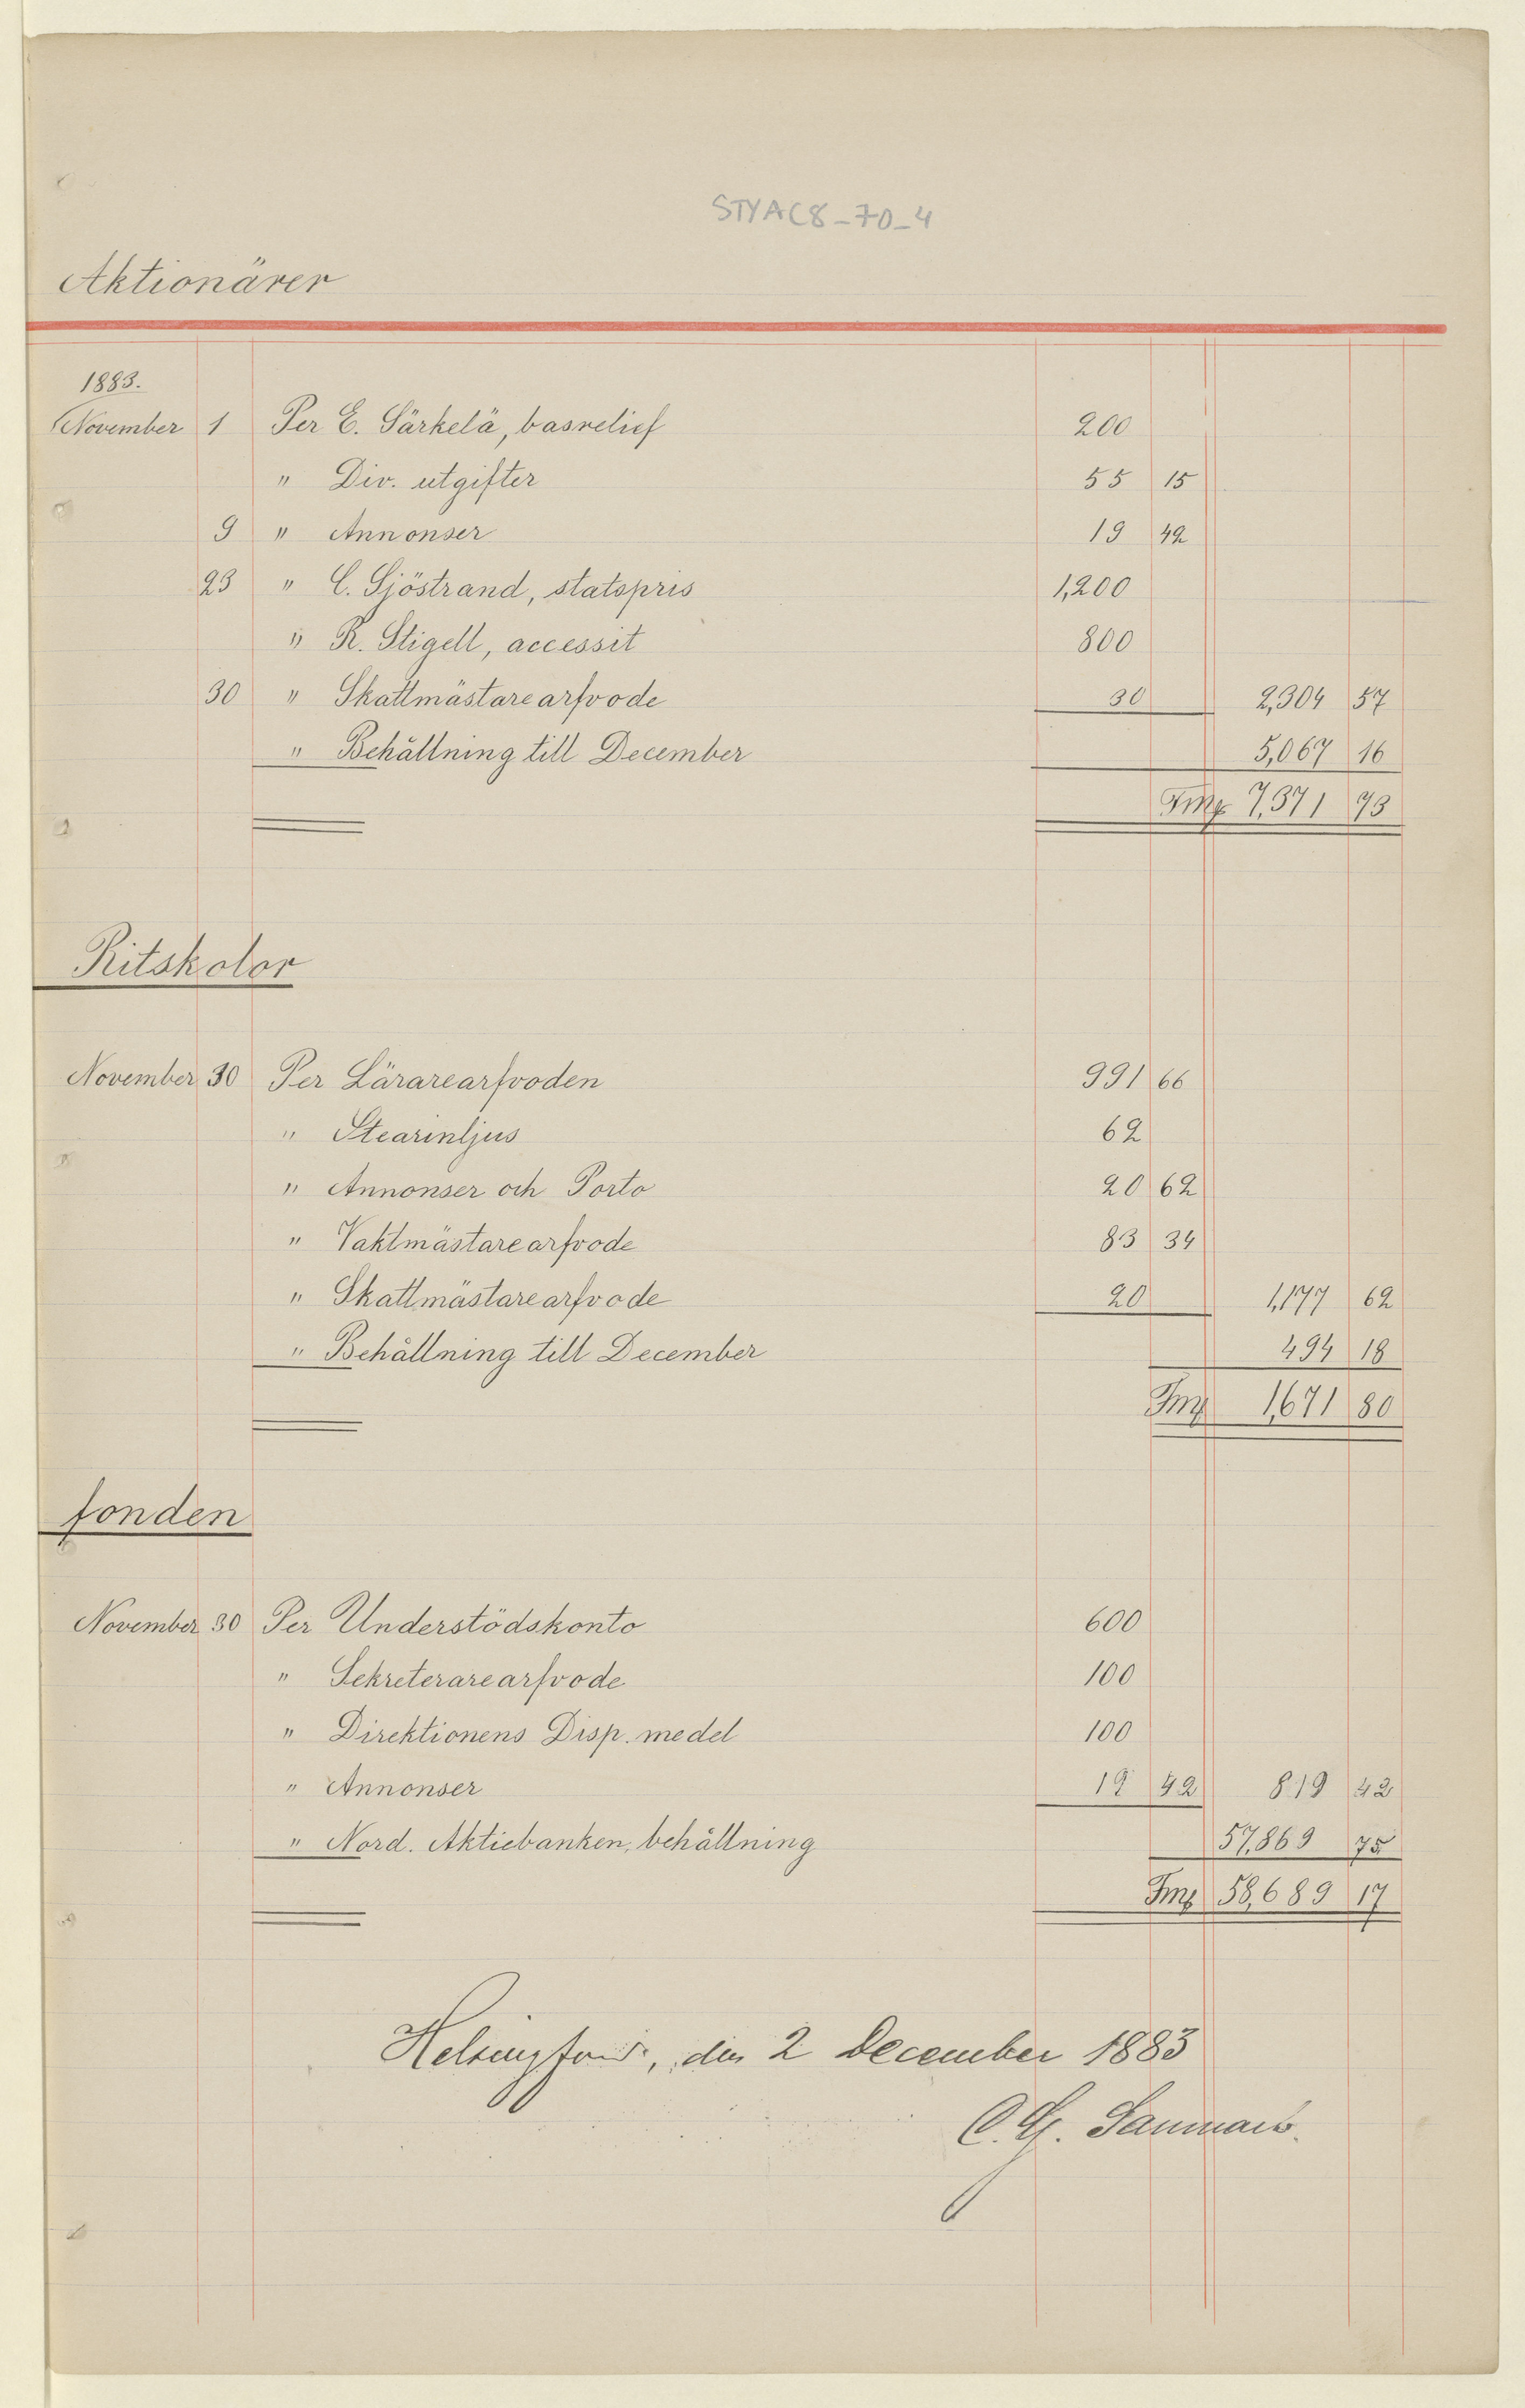 STYAC8_70_4
Aktionärer
1883.
November 1 Per E. Särkelä, basrelief 200
" Div. utgifter 55 15
9 " Annonser 19 42
23 " C. Sjöstrand, statspris 1,200
" R. Stigell, accessit 800
30 " Skattmästarearfvode 30 2,304 57
" Behållning till December 5,067 16
Fmk 7,371 73
Ritskolor
November 30 Per Lärarearfvoden 991 66
" Stearinljus 62
" Annonser och Porto 20 62
" Vaktmästarearfvode 83 34
" Skattmästarearfvode 20 1,177 62
" Behållning till December 494 18
Fmk 1,671 80
fonden
November 30 Per Understödskonto 600
" Sekreterarearfvode 100
" Direktionens Disp. medel 100
" Annonser 19 42 819 42
" Nord. Aktiebanken, behållning 57,869 75
Fmk 58,689 17
Helsingfors, den 2 December 1883
C. G. Sanmark.